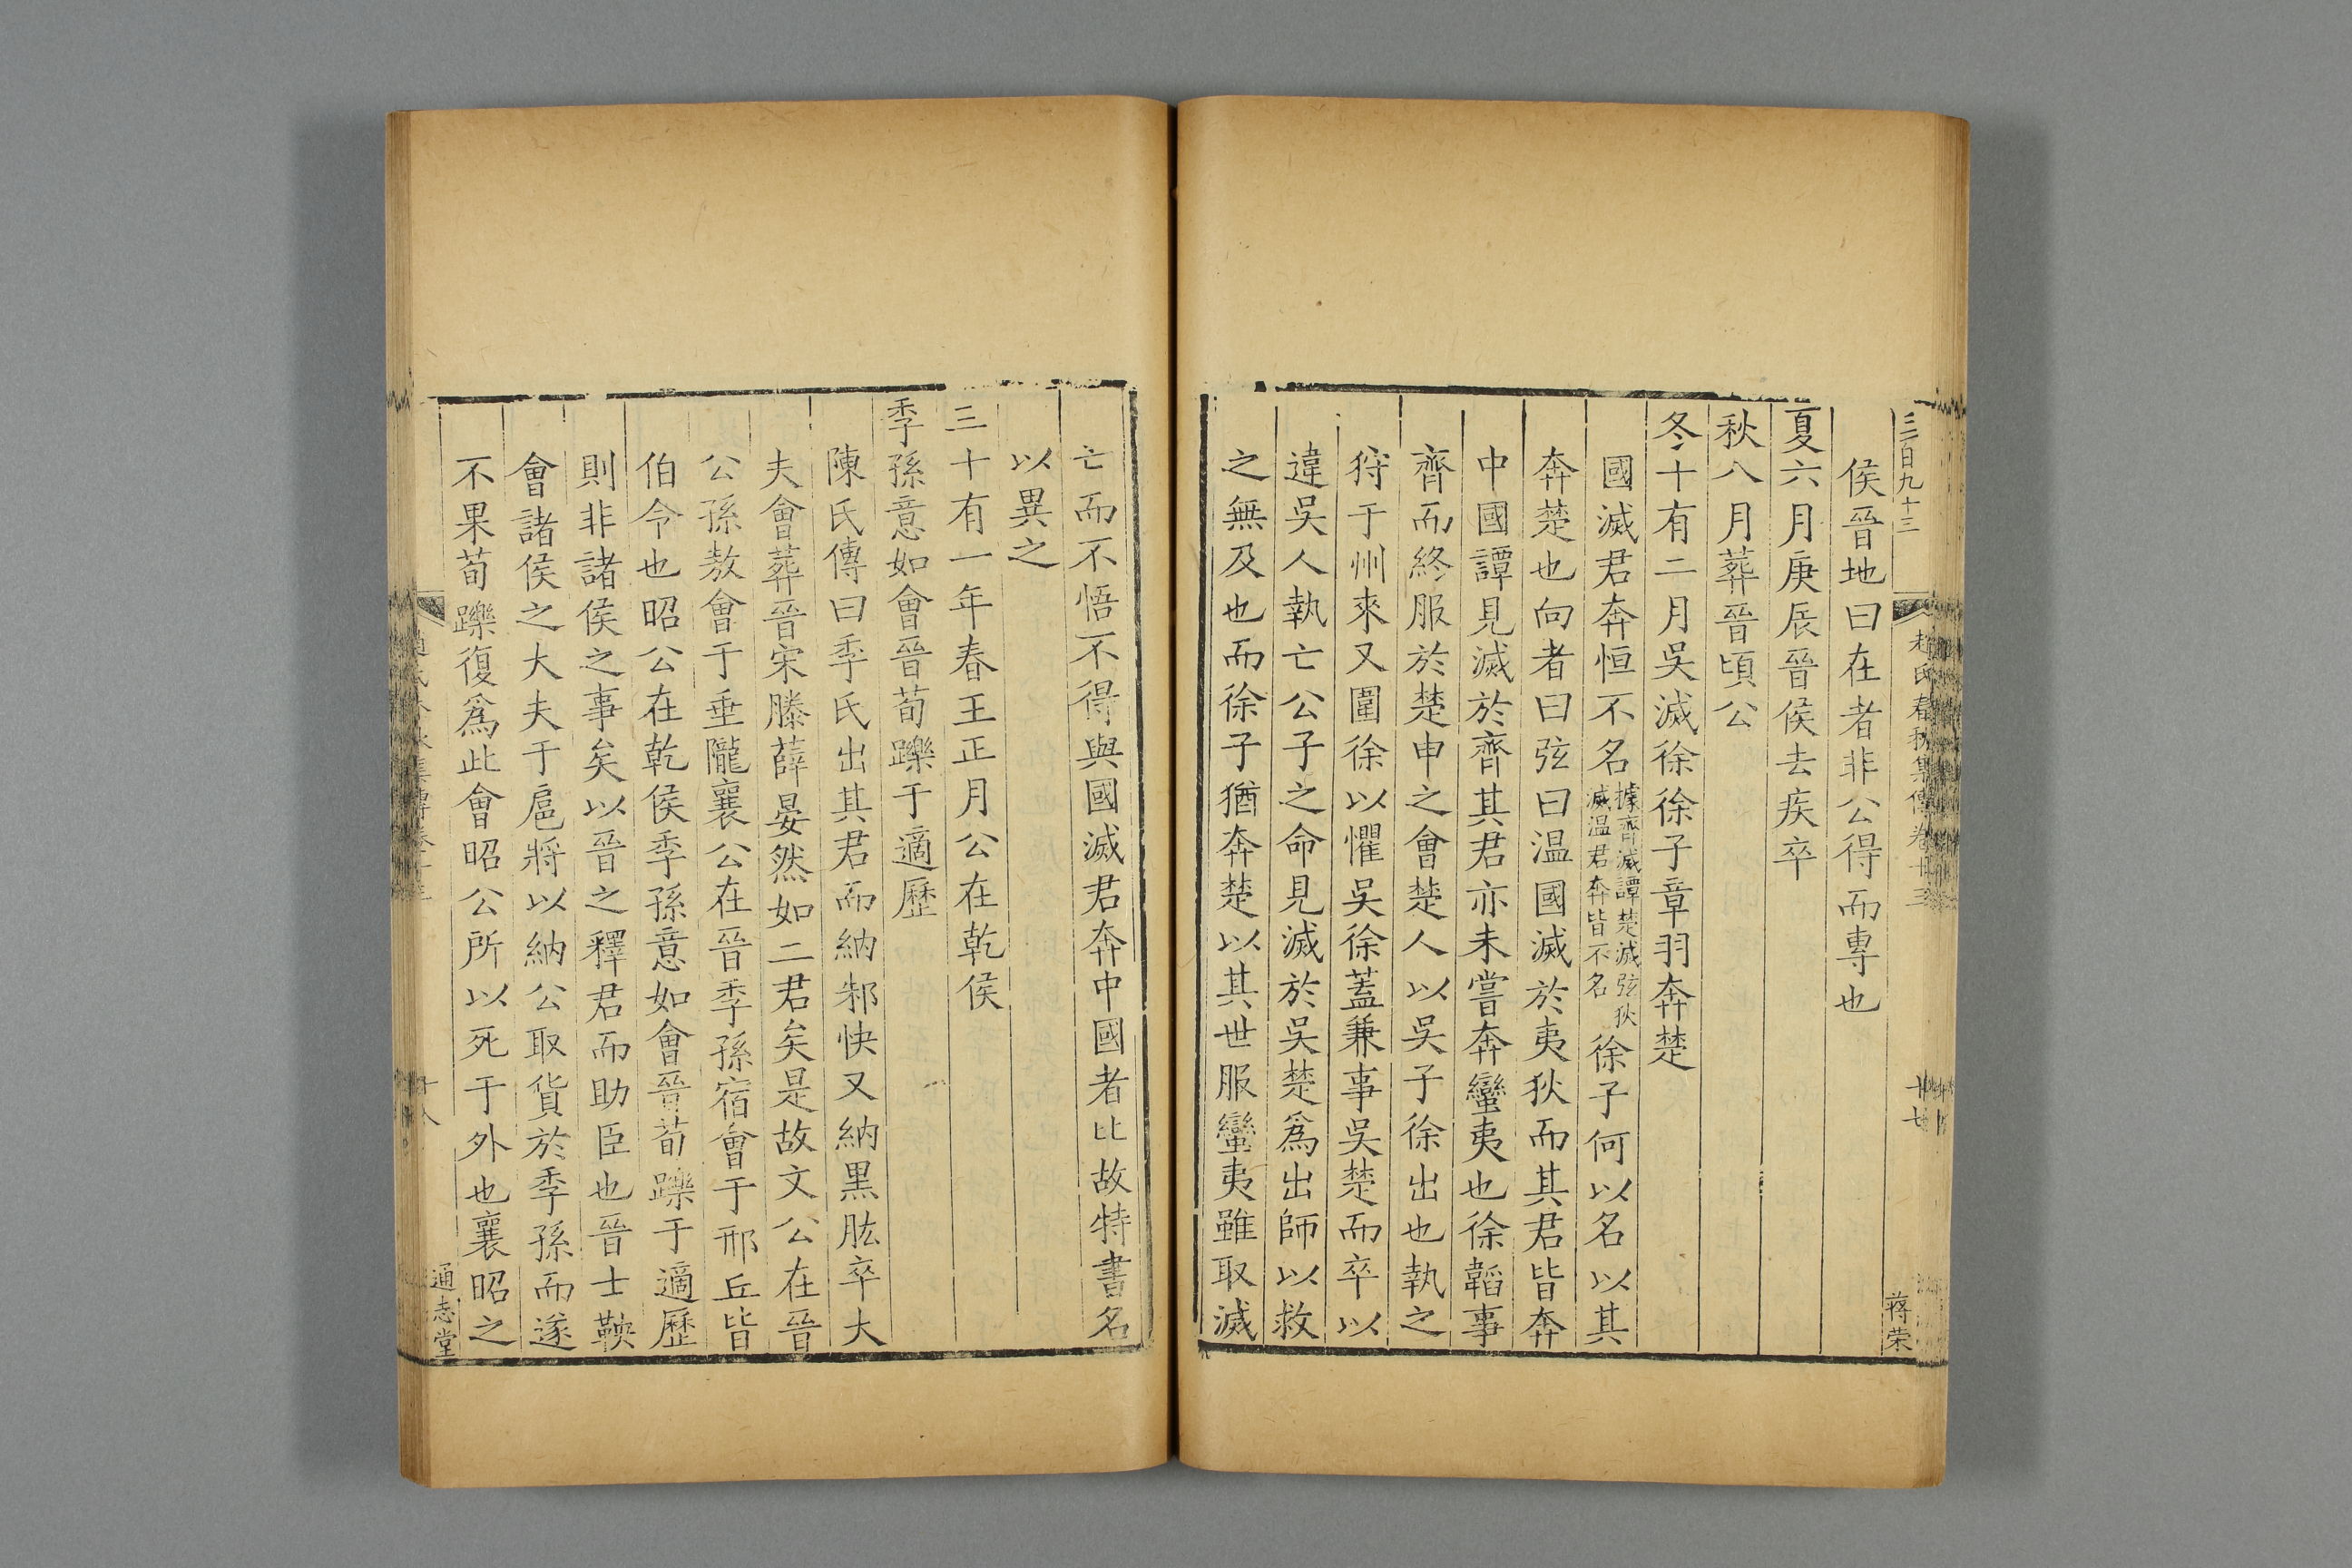 三百九十三
趙氏春秋集傳卷十三
蒋荣
侯晉地曰在者非公得而專也
夏六月庚辰晉侯去疾卒
秋八月葬晉頃公
冬十有二月吳滅徐徐子章羽奔楚
國滅君奔恒不名據齊滅譚楚滅弦狄滅温君奔皆不名徐子何以名以其
奔楚也向者曰弦曰温國滅於夷狄而其君皆奔
中國譚見滅於齊其君亦未嘗奔蠻夷也徐韜事
齊而終服於楚申之會楚人以吳子徐出也執之
狩于州來又圍徐以懼吳徐蓋兼事吳楚而卒以
違吳人執亡公子之命見滅於吳楚為出師以救
之無及也而徐子猶奔楚以其世服蠻夷雖取滅
亡而不悟不得與國滅君奔中國者比故特書名
以異之
三十有一年春王正月公在乾侯
季孫意如會晉荀躒于適歷
陳氏傳曰季氏出其君而納邾快又納黒肱卒大
夫會葬晉宋滕薛晏然如二君矣是故文公在晉
公孫敖會于垂隴襄公在晉季孫宿會于邢丘皆
伯令也昭公在乾侯季孫意如會晉荀躒于適歷
則非諸侯之事矣以晉之釋君而助臣也晉士鞅
會諸侯之大夫于扈將以納公取貨於季孫而遂
不果荀躒復為此會昭公所以死于外也襄昭之
十八
通志堂